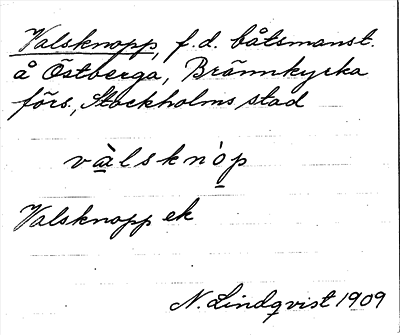 Valsknopp, f.d. båtsmanst.
å Östberga, Brännkyrka
förs., Stockholms stad
vàlsknòp
Valsknopp ek
N. Lindqvist 1909